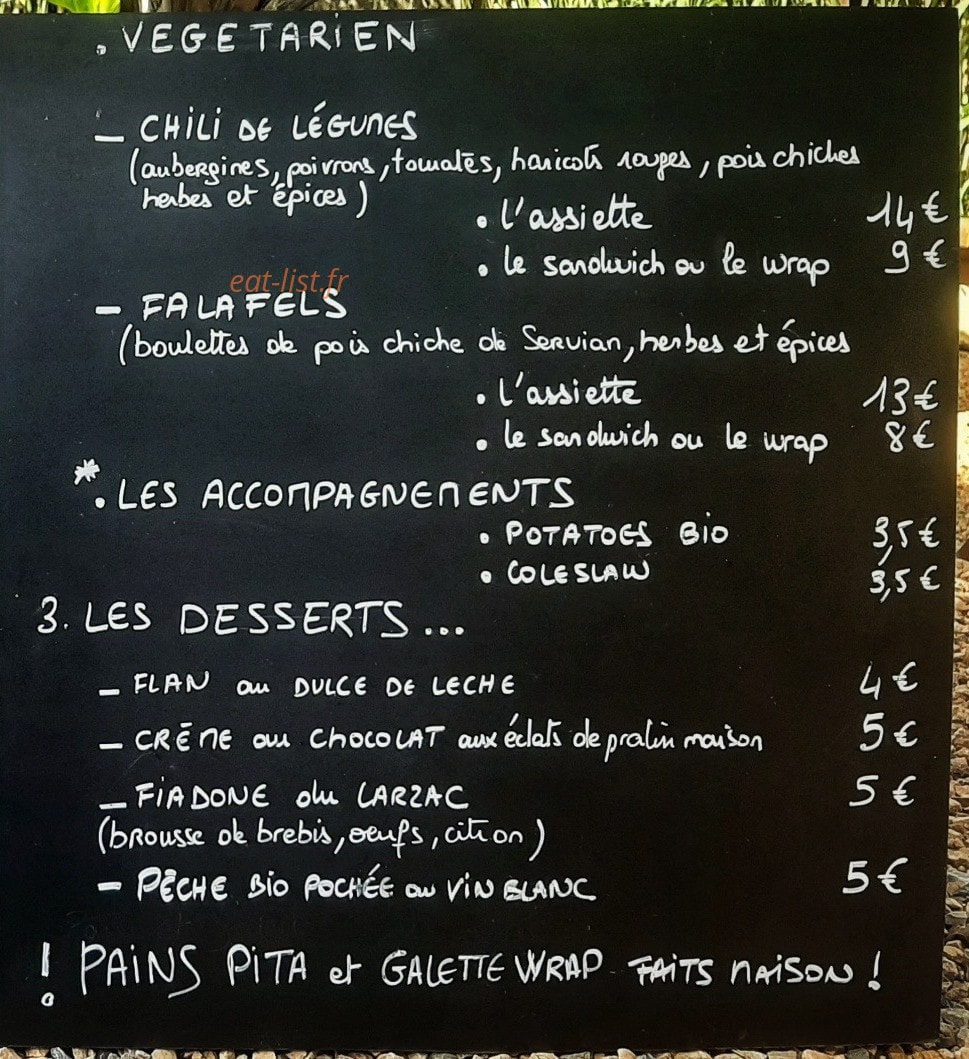 . VEGETARIEN
- CHILI DE LÉGUMES
(aubergines, poivrons, tomates, haricots rouges, pois chiches
herbes et épices)
• l'assiette 14 €
• le sandwich ou le wrap 9 €
eat-list.fr
- FALAFELS
(boulettes de pois chiche de Servian, herbes et épices
• l'assiette 13 €
• le sandwich ou le wrap 8 €
* . LES ACCOMPAGNEMENTS
• POTATOES BIO 3,5 €
• COLESLAW 3,5 €
3. LES DESSERTS...
- FLAN au DULCE DE LECHE 4 €
- CRÈME au CHOCOLAT aux éclats de pralin maison 5 €
- FIADONE du LARZAC 5 €
(brousse de brebis, oeufs, citron)
- PÊCHE BIO POCHÉE au VIN BLANC 5 €
! PAINS PITA et GALETTE WRAP FAITS MAISON !